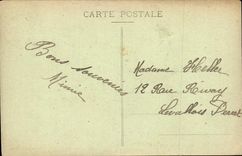 CARTE POSTALE
Bons souvenirs
Mimie
Madame Heller
12 Rue Rivay
Levallois Perret